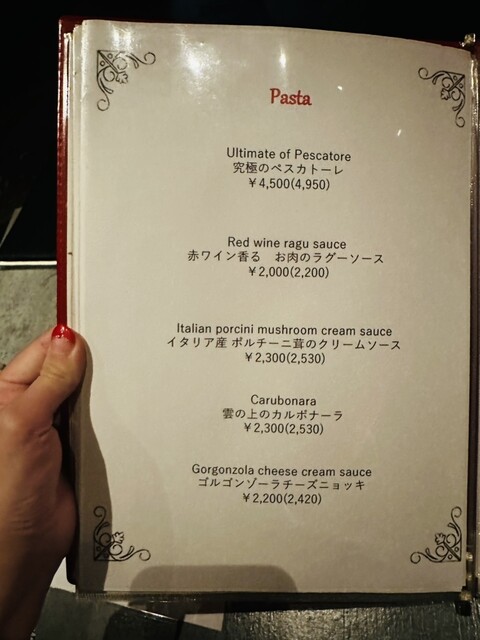 Pasta
Ultimate of Pescatore
究極のペスカトーレ
￥4,500(4,950)
Red wine ragu sauce
赤ワイン香る　お肉のラグーソース
￥2,000(2,200)
Italian porcini mushroom cream sauce
イタリア産 ポルチーニ茸のクリームソース
￥2,300(2,530)
Carubonara
雲の上のカルボナーラ
￥2,300(2,530)
Gorgonzola cheese cream sauce
ゴルゴンゾーラチーズニョッキ
￥2,200(2,420)